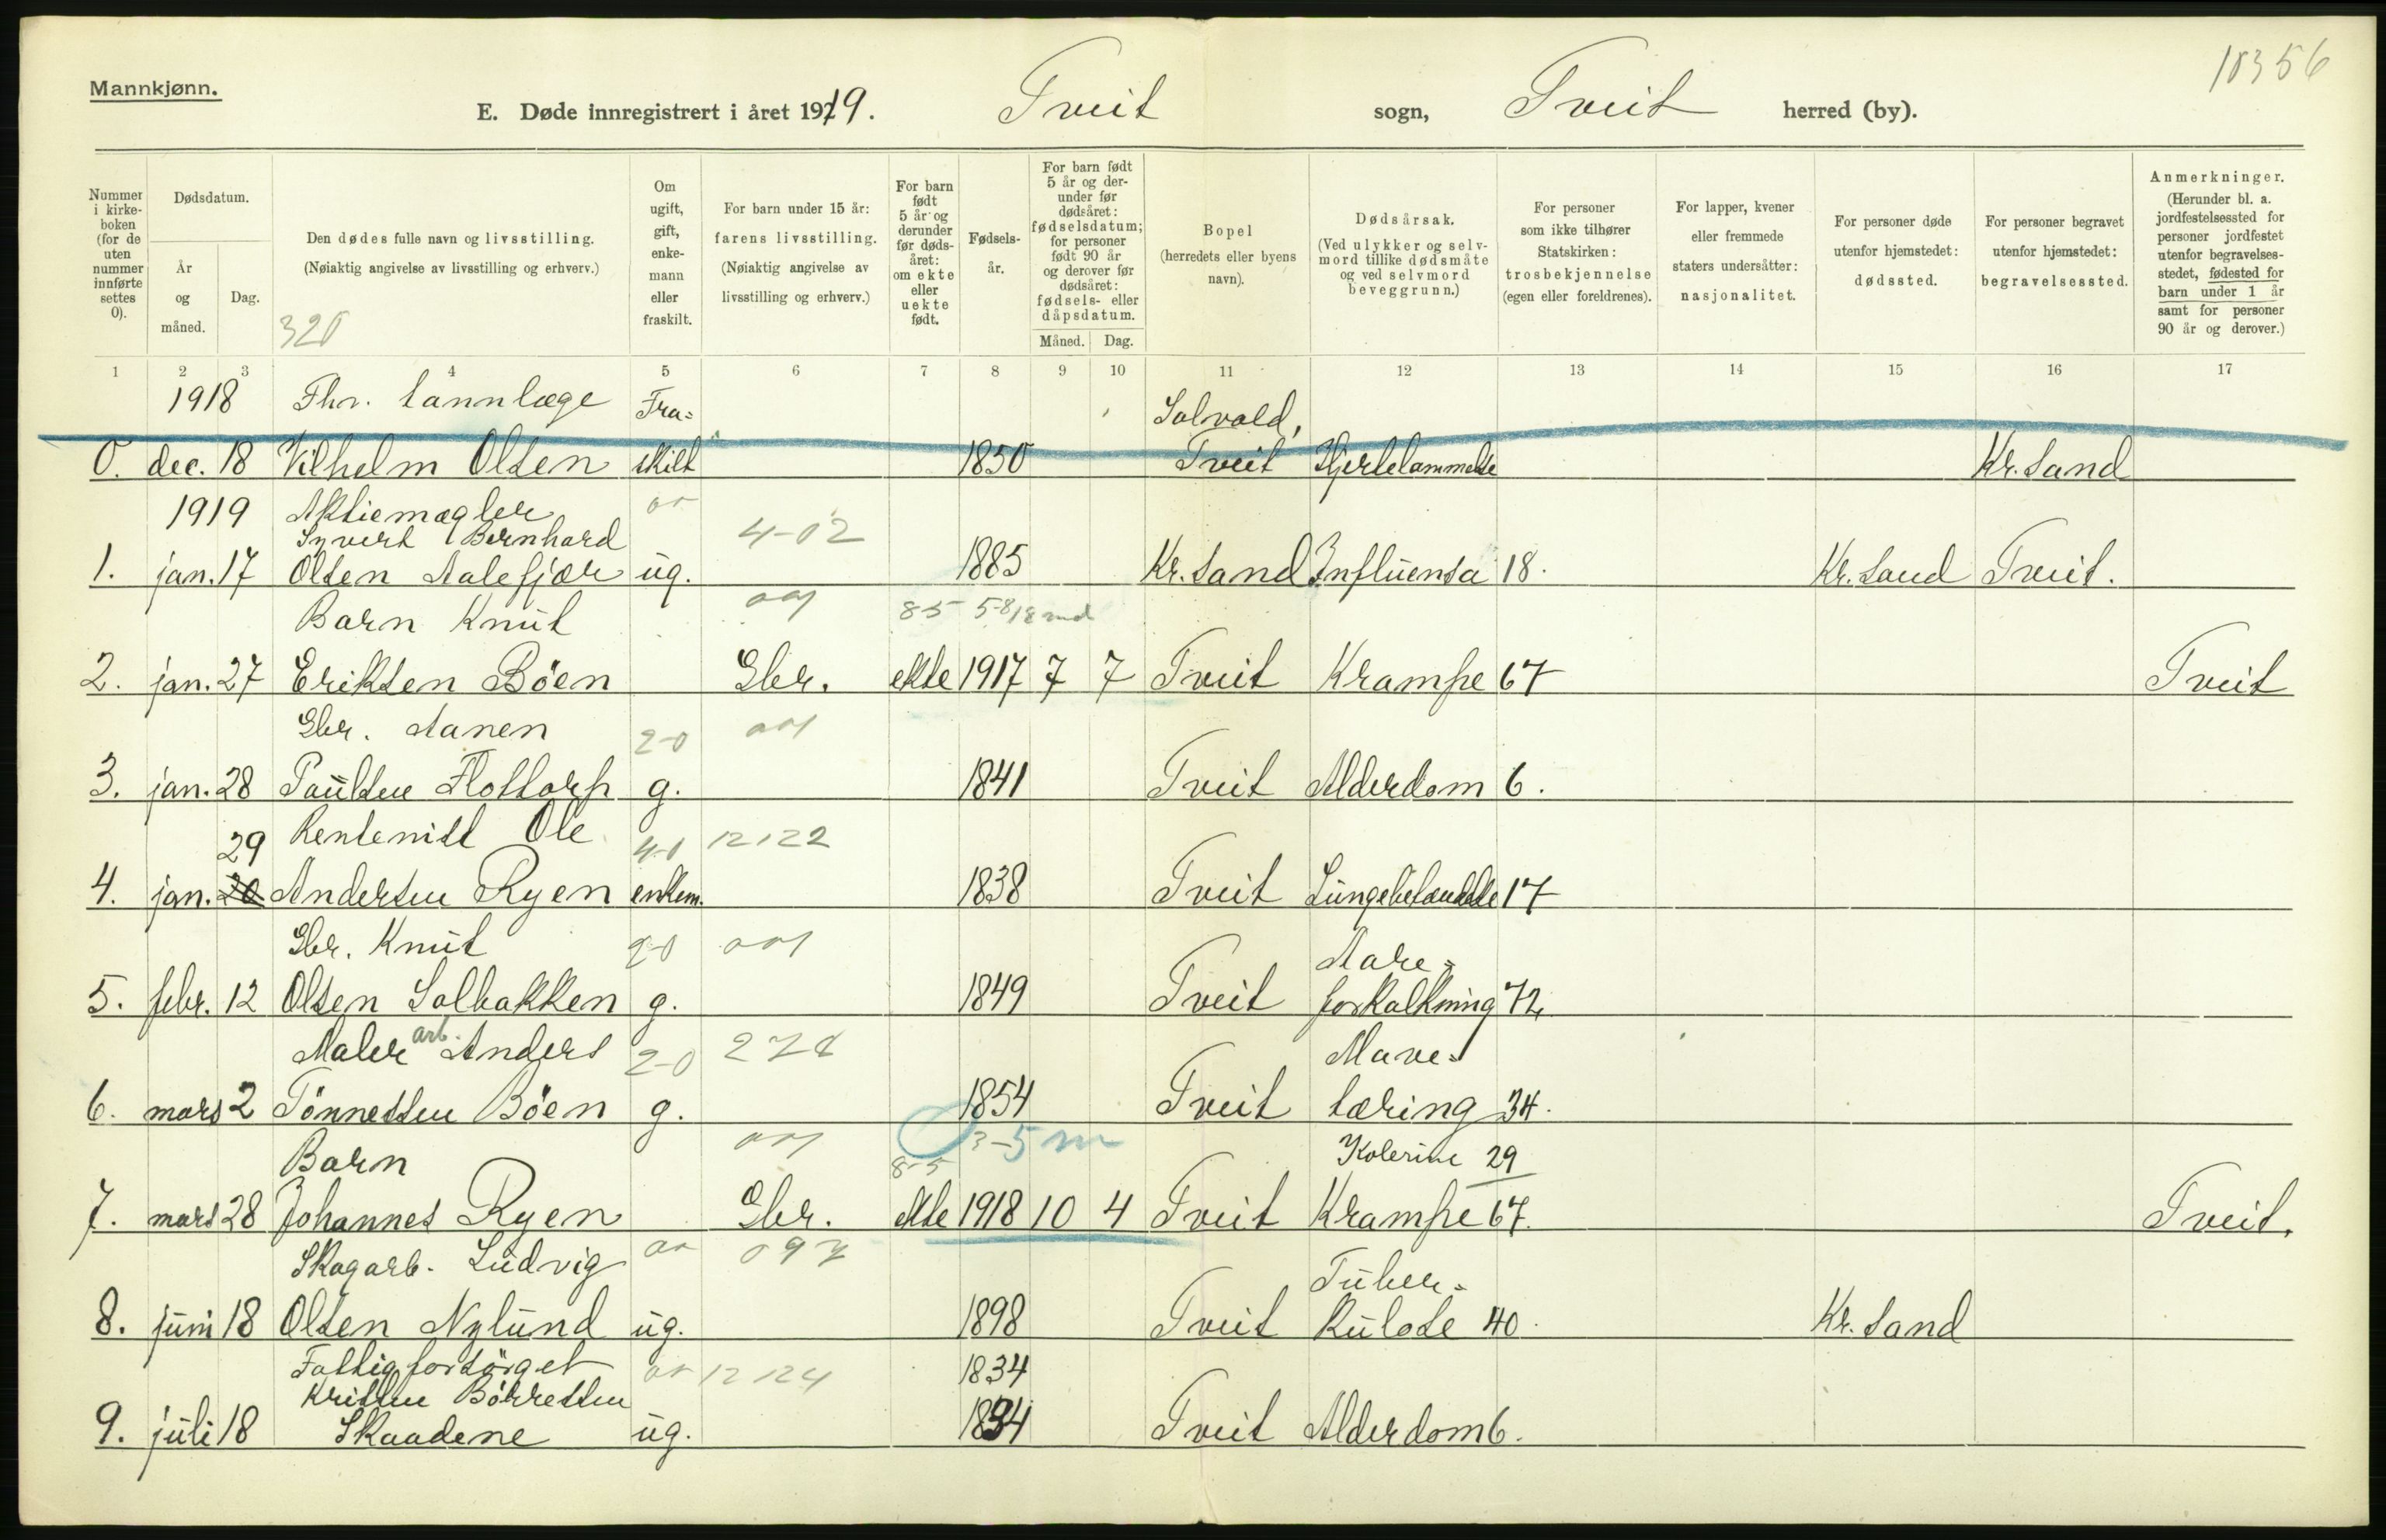 18356
Mannkjønn.
E. Døde innregistrert i året 1919. Tveit sogn, Tveit herred (by).
Nummer i kirke- boken (for de uten nummer innførte settes 0).
Dødsdatum.
År og måned.
Dag.
Den dødes fulle navn og livsstilling.
(Nøiaktig angivelse av livsstilling og erhverv.)
320
Om ugift, gift, enke- mann eller fraskilt.
For barn under 15 år: farens livsstilling. (Nøiaktig angivelse av livsstilling og erhverv.)
For barn født 5 år og derunder før døds- året: om ekte eller uekte født.
Fødsels- år.
For barn født 5 år og der- under før dødsåret: fødselsdatum; for personer født 90 år og derover før dødsåret: fødsels- eller dåpsdatum.
Måned. Dag.
Bopel (herredets eller byens navn).
Dødsårsak. (Ved ulykker og selv- mord tillike dødsmåte og ved selvmord beveggrunn.)
For personer som ikke tilhører Statskirken: trosbekjennelse (egen eller foreldrenes).
For lapper, kvener eller fremmede staters undersåtter: nasjonalitet.
For personer døde utenfor hjemstedet: dødssted.
For personer begravet utenfor hjemstedet: begravelsessted.
Anmerkninger. (Herunder bl. a. jordfestelsessted for personer jordfestet utenfor begravelses- stedet, fødested for barn under 1 år samt for personer 90 år og derover.)
1 2 3 4 5 6 7 8 9 10 11 12 13 14 15 16 17
1918 Fhv. tannlæge Fra= Solvold,
0. dec. 18 Vilhelm Olsen skilt 1850 Tveit Hjertelammelse Kr.sand
1919 Aktiemægler
Syvert Bernhard 4-02
1. jan. 17 Olsen Aalefjær ug. 1885 Kr.sand Influensa 18. Kr.sand Tveit.
Barn Knut 85
2. jan. 27 Eriksen Böen Gbr. ekte 1917 7 7 Tveit Krampe 67 Tveit
Gbr. Aanen 20
3. jan. 28 Paulsen Flottorp g. 1841 Tveit Alderdom 6.
29 Rentenist Ole 40 12122
4. jan. 20 Andersen Ryen enkem. 1838 Tveit Lungebetændelse 17
Gbr. Knut 20 Aare=
5. febr. 12 Olsen Solbakken g. 1849 Tveit forkalkning 72,
Maler arb. Anders 20 278 Mave=
6. mars 2 Tönnessen Böen g. 1854 Tveit tæring 34.
3-5 m
Barn 85 Kolerine 29
7. mars 28 Johannes Ryen Gbr. ekte 1918 10 4 Tveit Krampe 67. Tveit.
Skogarb. Ludvig 097 Tuber=
8. juni 18 Olsen Nylund ug. 1898 Tveit kulose 40. Kr.sand
Fattigforsörget 12124 1834
Kristen Börresen
9. juli 18 Skaadene ug. 1894 Tveit Alderdom 6.